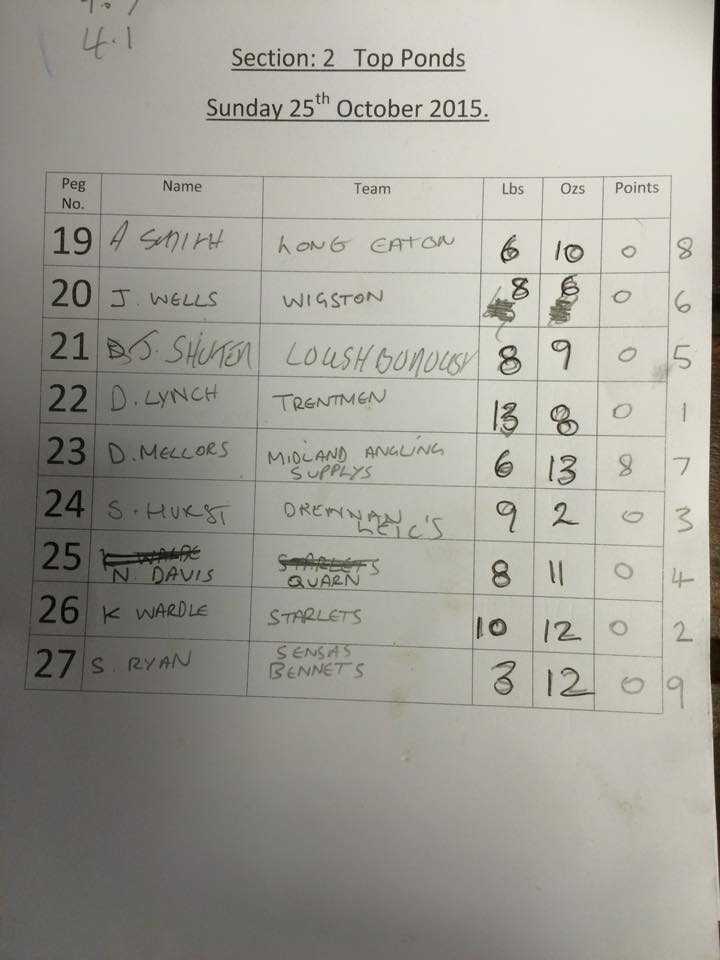 4.1
Section: 2 Top Ponds
Sunday 25th October 2015.
Peg No. Name Team Lbs Ozs Points
19 A SMITH LONG EATON 6 10 0 8
20 J. WELLS WIGSTON 8 6 0 6
21 J. SHUTER LOUSHBOROUSH 8 9 0 5
22 D. LYNCH TRENTMEN 13 8 0 1
23 D. MELLORS MIDLAND ANGLING SUPPLYS 6 13 8 7
24 S. HURST DRENNAN LEIC'S 9 2 0 3
25 N. DAVIS QUARN 8 11 0 4
26 K WARDLE STARLETS 10 12 0 2
27 S. RYAN SENSAS BENNETS 3 12 0 9